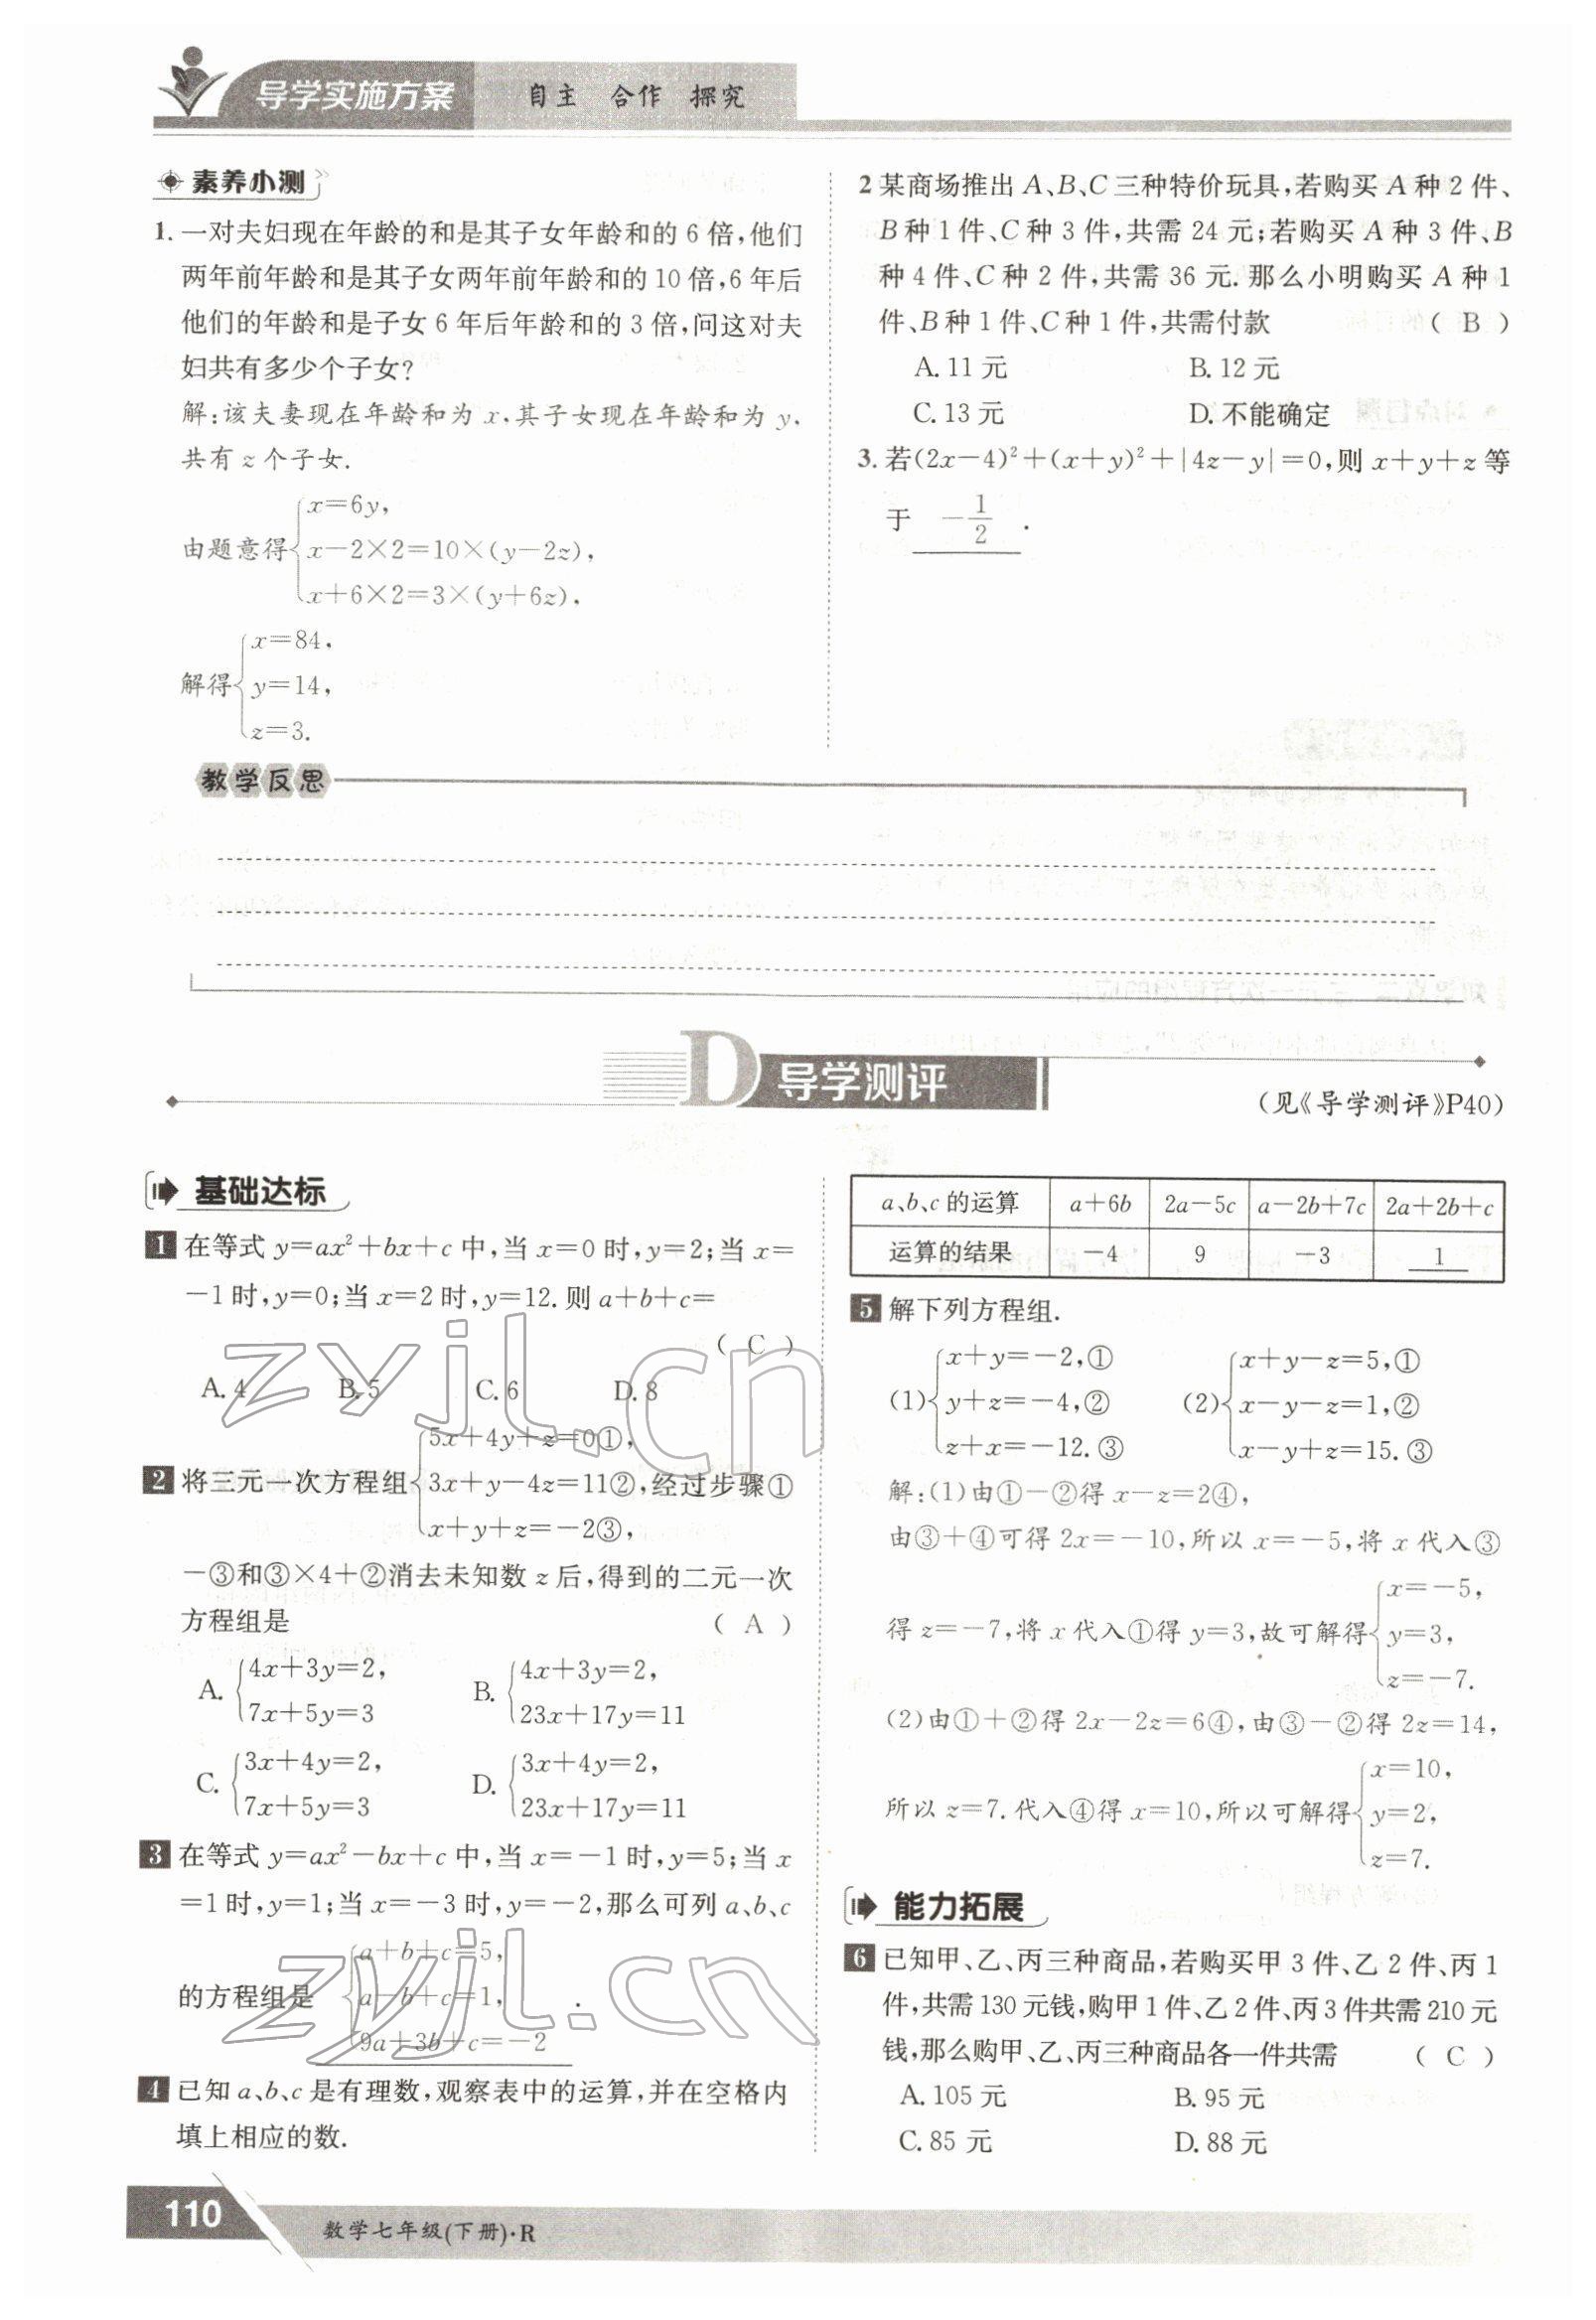 导学实施方案 自主 合作 探究
素养小测
1. 一对夫妇现在年龄的和是其子女年龄和的 6 倍,他们
两年前年龄和是其子女两年前年龄和的 10 倍,6 年后
他们的年龄和是子女 6 年后年龄和的 3 倍,问这对夫
妇共有多少个子女?
解:该夫妻现在年龄和为 x,其子女现在年龄和为 y,
共有 z 个子女.
x=6y,
由题意得 x-2×2=10×(y-2z),
x+6×2=3×(y+6z).
x=84,
解得 y=14,
z=3.
2 某商场推出 A、B、C 三种特价玩具,若购买 A 种 2 件、
B 种 1 件、C 种 3 件,共需 24 元;若购买 A 种 3 件、B
种 4 件、C 种 2 件,共需 36 元. 那么小明购买 A 种 1
件、B 种 1 件、C 种 1 件,共需付款 ( B )
A. 11 元 B. 12 元
C. 13 元 D. 不能确定
3. 若(2x-4)²+(x+y)²+|4z-y|=0,则 x+y+z 等
于 -1/2 .
教学反思
D 导学测评
(见《导学测评》P40)
基础达标
1 在等式 y=ax²+bx+c 中,当 x=0 时,y=2;当 x=
-1 时,y=0;当 x=2 时,y=12. 则 a+b+c=
( C )
A. 4 B. 5 C. 6 D. 8
5x+4y+z=0①,
2 将三元一次方程组 3x+y-4z=11②,经过步骤①
x+y+z=-2③,
-③和③×4+②消去未知数 z 后,得到的二元一次
方程组是 ( A )
A. 4x+3y=2, 7x+5y=3 B. 4x+3y=2, 23x+17y=11
C. 3x+4y=2, 7x+5y=3 D. 3x+4y=2, 23x+17y=11
3 在等式 y=ax²-bx+c 中,当 x=-1 时,y=5;当 x
=1 时,y=1;当 x=-3 时,y=-2,那么可列 a、b、c
a+b+c=5,
的方程组是 a-b+c=1, .
9a+3b+c=-2
4 已知 a、b、c 是有理数,观察表中的运算,并在空格内
填上相应的数.
a、b、c 的运算 a+6b 2a-5c a-2b+7c 2a+2b+c
运算的结果 -4 9 -3 1
5 解下列方程组.
x+y=-2,① x+y-z=5,①
(1) y+z=-4,② (2) x-y-z=1,②
z+x=-12.③ x-y+z=15.③
解:(1)由①-②得 x-z=2④,
由③+④可得 2x=-10,所以 x=-5,将 x 代入③
x=-5,
得 z=-7,将 x 代入①得 y=3,故可解得 y=3,
z=-7.
(2)由①+②得 2x-2z=6④,由③-②得 2z=14,
x=10,
所以 z=7. 代入④得 x=10,所以可解得 y=2,
z=7.
能力拓展
6 已知甲、乙、丙三种商品,若购买甲 3 件、乙 2 件、丙 1
件,共需 130 元钱,购甲 1 件、乙 2 件、丙 3 件共需 210 元
钱,那么购甲、乙、丙三种商品各一件共需 ( C )
A. 105 元 B. 95 元
C. 85 元 D. 88 元
110 数学七年级(下册)·R
zyjl.cn
zyjl.cn